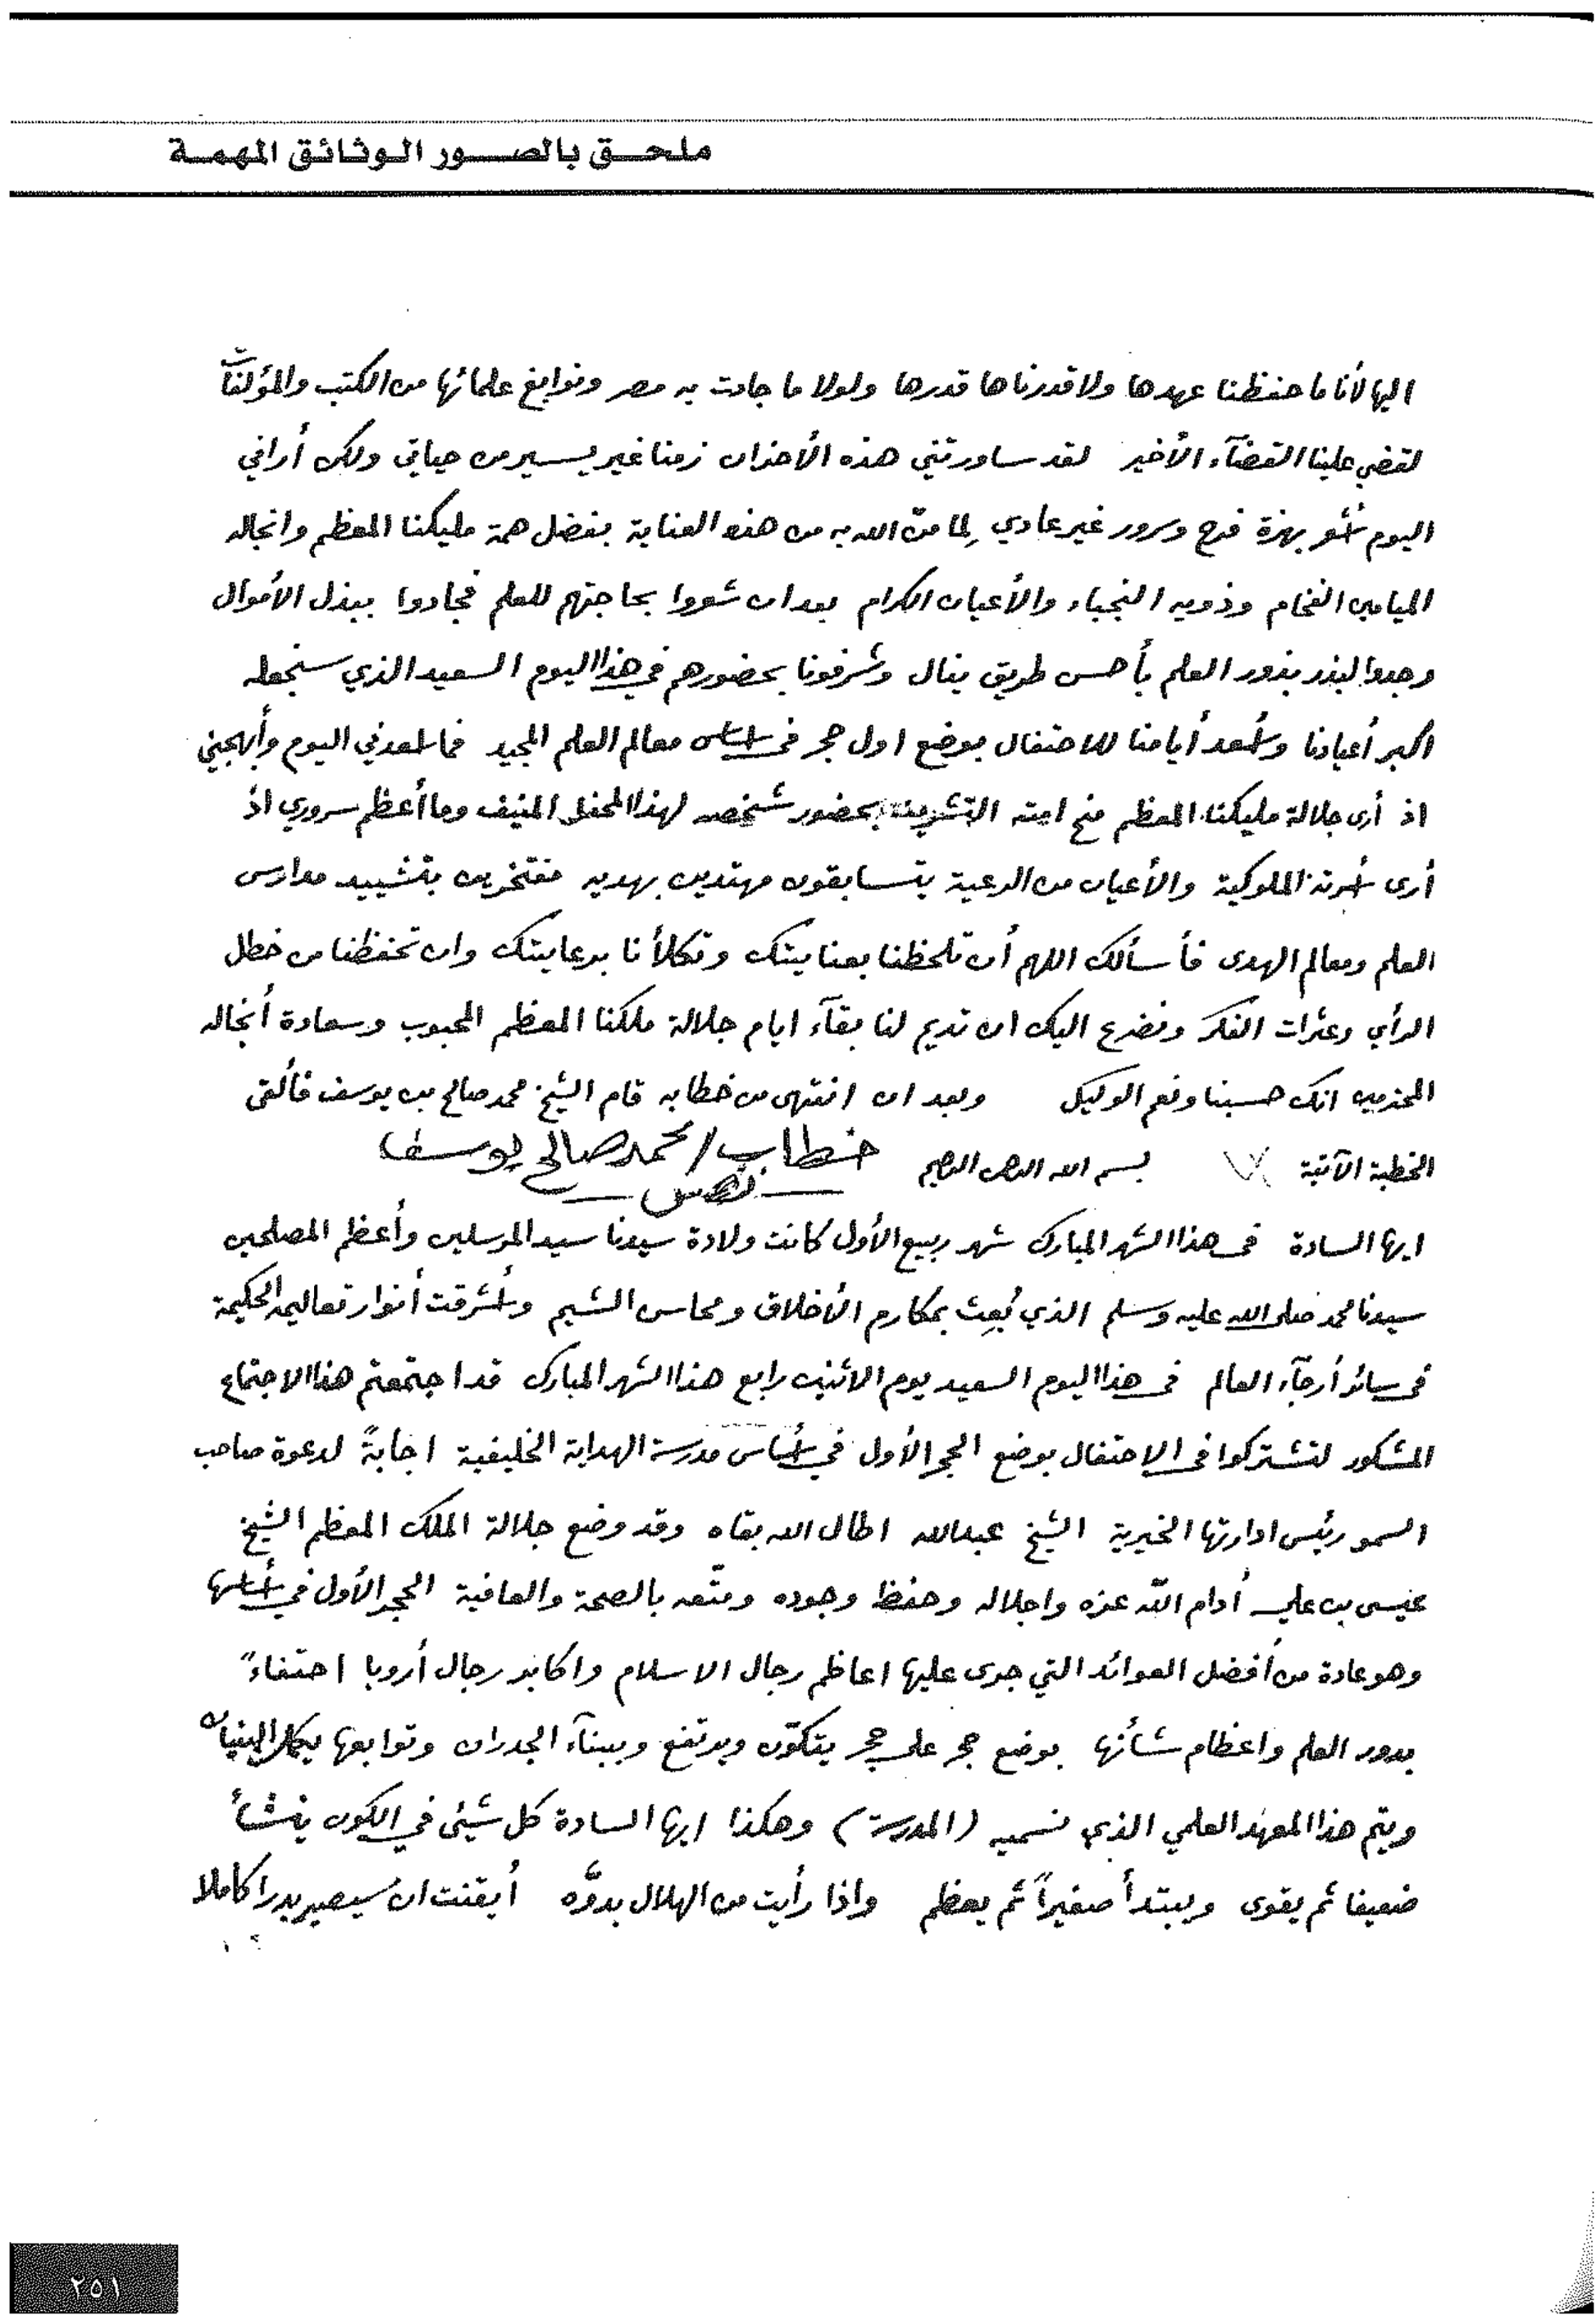 ملحق بالصور الوثائق المهمة
اليها لأنا ما حفظنا عهدها ولا قدرناها قدرها ولولا ما جادت به مصر ونوابغ علمائها من الكتب والمؤلفات
لقضي علينا القضآء الأخير لقد ساورتني هذه الأحزان زمنا غير يسير من حياتي ولكن أراني
اليوم أشعر بهزة فرح وسرور غير عادي لِما منّ الله به من هذه العناية بفضل همة مليكنا المعظم وانجاله
الميامين الفخام وذويه النجباء والأعيان الكرام بعد ان شعروا بحاجتهم للعلم فجادوا ببذل الأموال
وجدوا لبذر بذور العلم بأحسن طريق ينال وشرفونا بحضورهم في هذا اليوم السعيد الذي سنجعله
اكبر أعيادنا وأسعد أيامنا للاحتفال بوضع اول حجر في اساس معالم العلم المجيد فما اسعدني اليوم وأبهجني
اذ أرى جلالة مليكنا المعظم منح امته التشريف بحضور شخصه لهذا المحفل المنيف وما أعظم سروري اذ
أرى أسرته الملوكية والأعيان من الرعية يتسابقون مهتدين بهديه مفتخرين بتشييد مدارس
العلم ومعالم الهدى فأسألك اللهم أن تلحظنا بعنايتك وتكلأنا برعايتك وان تحفظنا من خطل
الرأي وعثرات الفكر ونضرع اليك ان تديم لنا بقآء ايام جلالة ملكنا المعظم المحبوب وسعادة أنجاله
انك حسبنا ونعم الوكيل وبعد ان انتهى من خطابه قام الشيخ محمد صالح بن يوسف فألقى
الخطبة الآتية بسم الله الرحمن الرحيم خطاب / محمد صالح يوسف
ايها السادة في هذا الشهر المبارك شهر ربيع الأول كانت ولادة سيدنا سيد المرسلين وأعظم المصلحين
سيدنا محمد صلى الله عليه وسلم الذي بُعِث بمكارم الأخلاق ومحاسن الشيم وأشرقت أنوار تعاليمه الحكيمة
في سائر أرجآء العالم في هذا اليوم السعيد يوم الاثنين رابع هذا الشهر المبارك قد اجتمعتم هذا الاجتماع
المشكور لتشتركوا في الاحتفال بوضع الحجر الأول في أساس مدرسة الهداية الخليفية اجابةً لدعوة صاحب
السمو رئيس ادارتها الخيرية الشيخ عبدالله اطال الله بقاه وقد وضع جلالة الملك المعظم الشيخ
عيسى بن علي أدام الله عزه واجلاله وحفظ وجوده ومتّعه بالصحة والعافية الحجر الأول في أساسها
وهو عادة من أفضل العوائد التي جرى عليها اعاظم رجال الاسلام واكابر رجال أروبا احتفاءً
بدور العلم واعظام شأنها بوضع حجر على حجر يتكوّن ويرتفع وببنآء الجدران وتوابعها يكمل البنيان
ويتم هذا المعهد العلمي الذي نسميه (المدرسة) وهكذا ايها السادة كل شيئ في الكون ينشأ
ضعيفا ثم يقوى ويبتدأ صغيراً ثم يعظم واذا رأيت من الهلال بدوَّه أيقنت ان سيصير بدرا كاملا
٢٥١